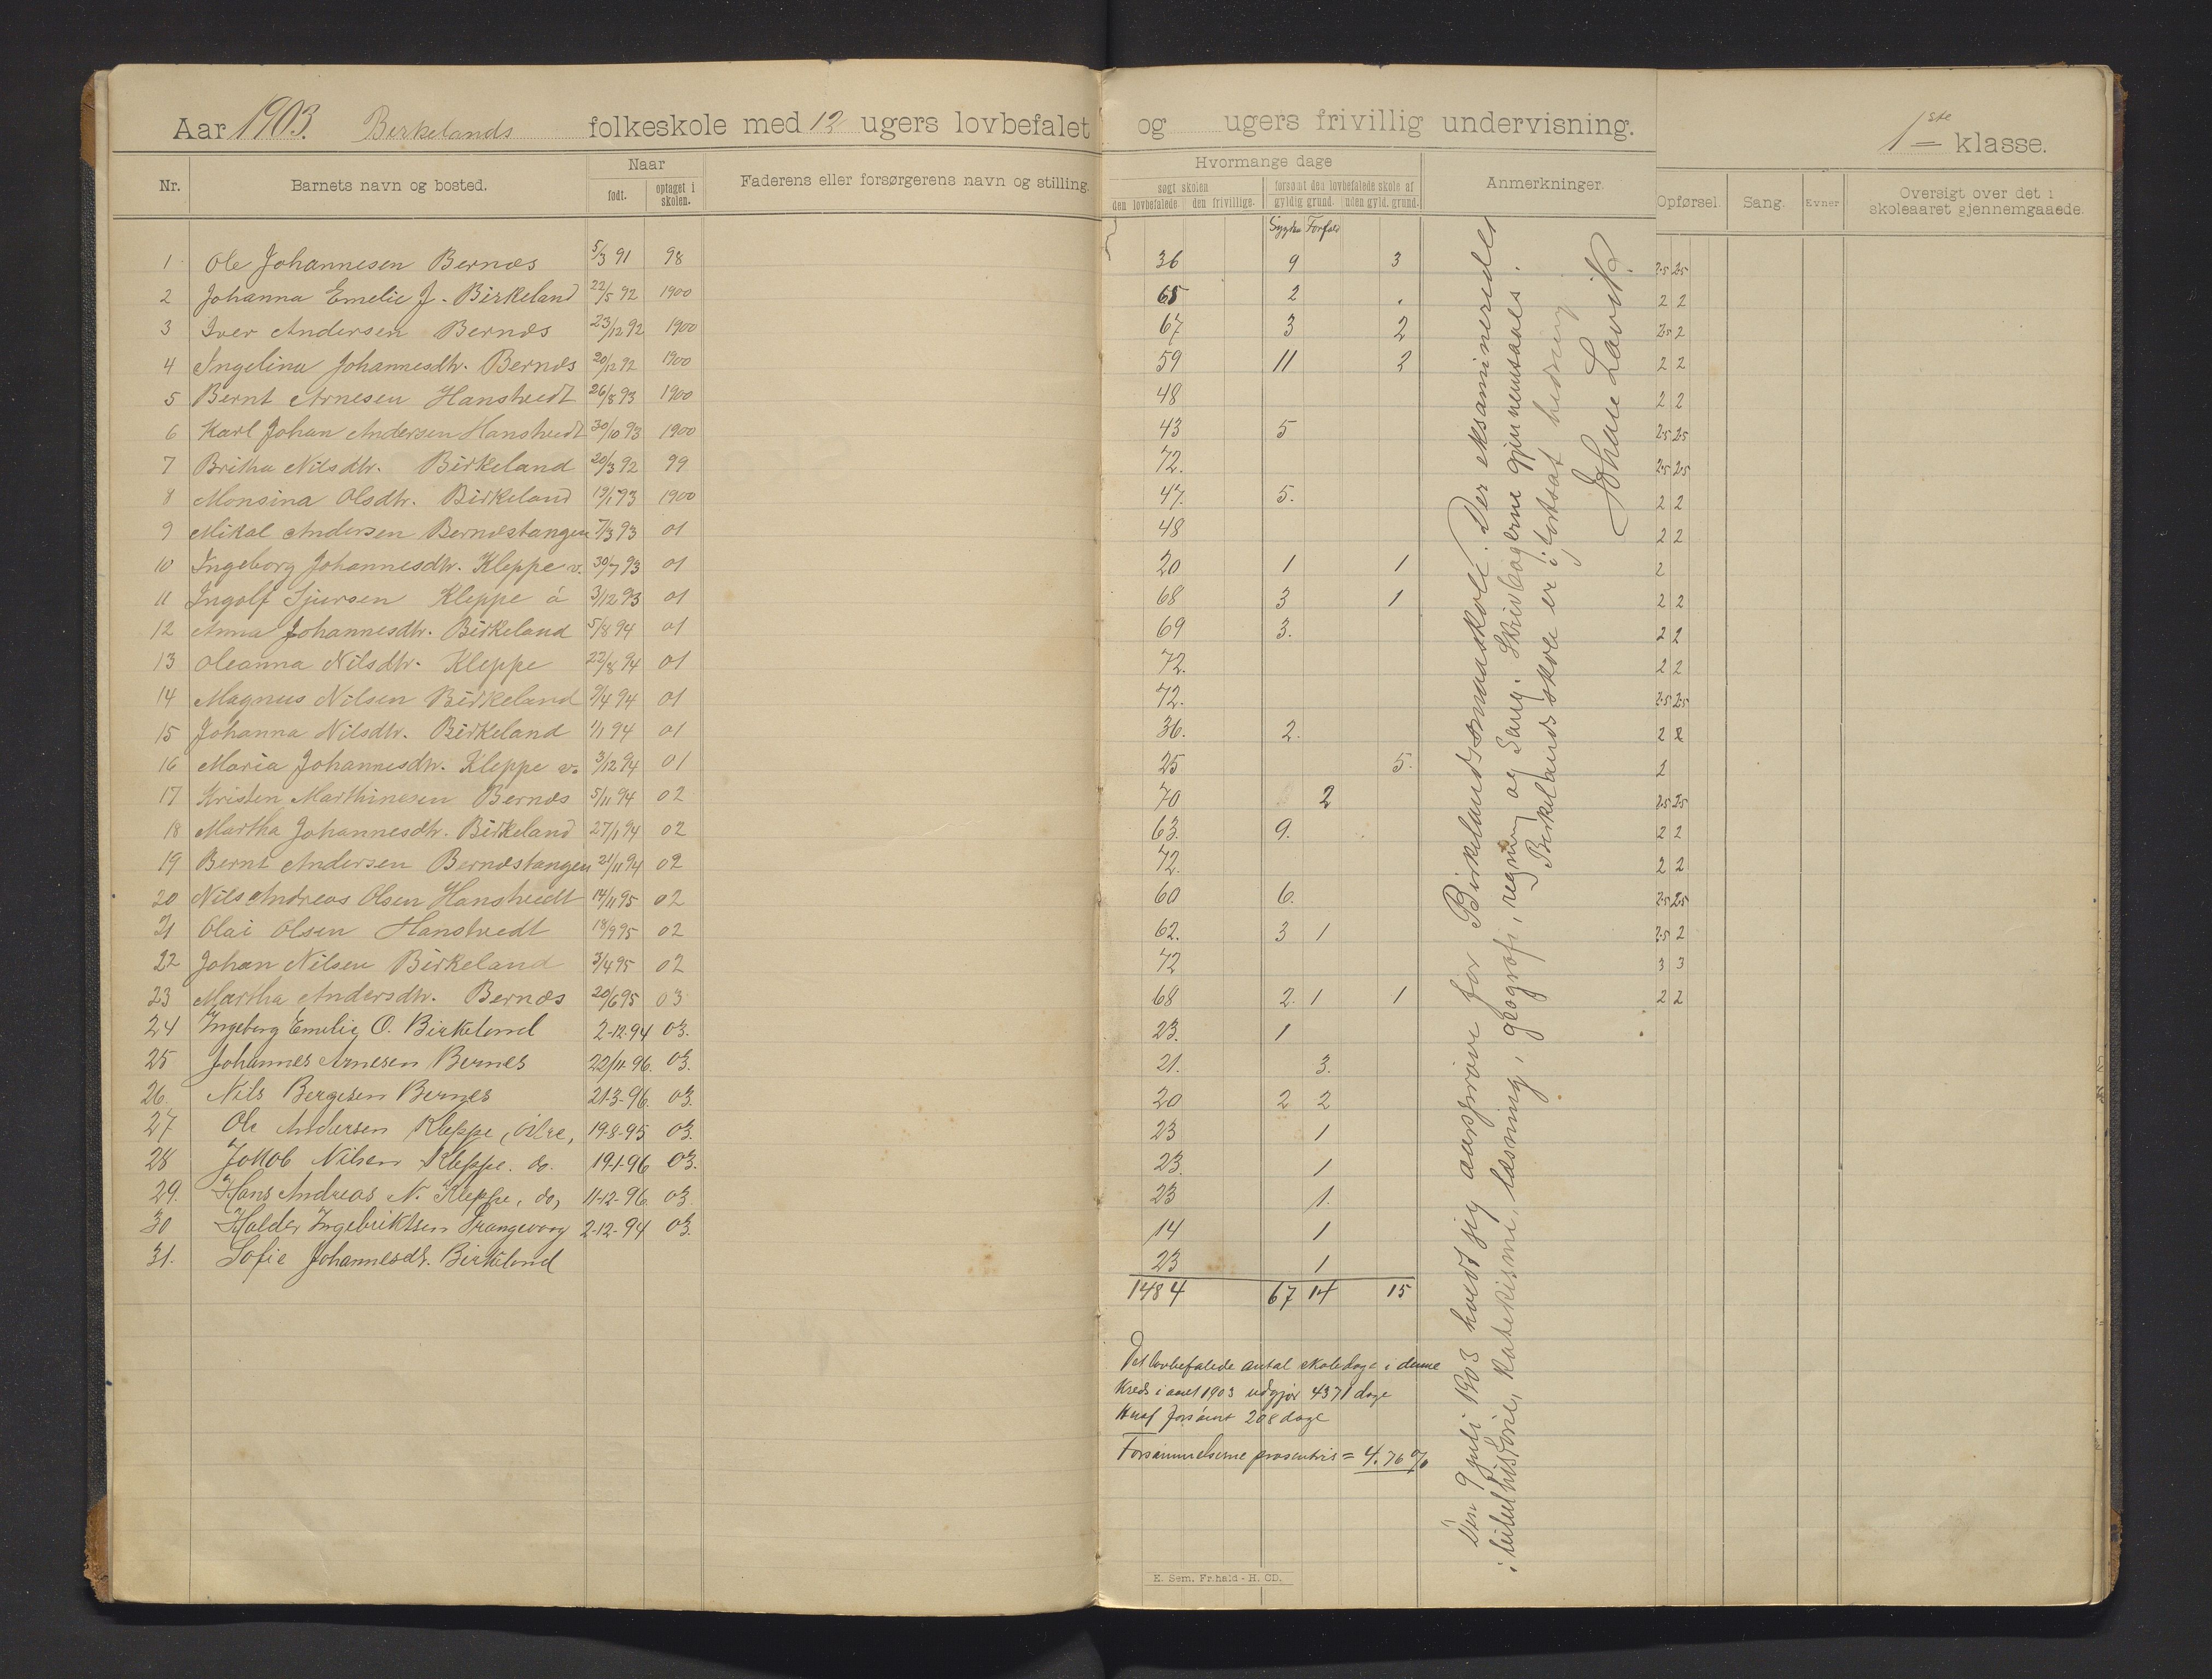 Aar 1903. Birkelands folkeskole med 12 ugers lovbefalet og ugers frivillig undervisning. 1ste klasse.
Nr. Barnets navn og bosted. Naar født. optaget i skolen. Faderens eller forsørgerens navn og stilling.
Hvormange dage søgt skolen den lovbefalede. den frivillige. forsømt den lovbefalede skole af gyldig grund. uden gyld. grund. Anmerkninger. Opførsel. Sang. Evner Oversigt over det i skoleaaret gjennemgaaede.
Sygdom Forfald
1 Ole Johannesen Bernæs 5/3 91 98 36 9 3 2.5 2.5
2 Johanna Emelie J. Birkeland 22/5 92 1900 65 2 2 2
3 Iver Andersen Bernæs 23/12 92 1900 67 3 2 2.5 2
4 Ingelina Johannesdtr. Bernæs 20/12 92 1900 59 11 2 2 2
5 Bernt Arnesen Hanstvedt 26/8 93 1900 48 2 2
6 Karl Johan Andersen Hanstvedt 30/10 93 1900 43 5 2.5 2.5
7 Britha Nilsdtr. Birkeland 20/3 92 99 72. 2.5 2.5
8 Monsina Olsdtr. Birkeland 19/1 93 1900 47. 5. 2 2
9 Mikal Andersen Bernæstangen 7/3 93 01 48 2 2
10 Ingeborg Johannesdtr. Kleppe v. 30/7 93 01 20 1 1 2
11 Ingolf Sjursen Kleppe ö 3/12 93 01 68 3 1 2 2
12 Anna Johannesdtr. Birkeland 5/8 94 01 69 3. 2 2
13 Oleanna Nilsdtr. Kleppe 22/8 94 01 72. 2 2
14 Magnus Nilsen Birkeland 9/4 94 01 72. 2.5 2.5
15 Johanna Nilsdtr. Birkeland 1/1 94 01 36. 2. 2 2
16 Maria Johannesdtr. Kleppe v. 3/12 94 01 25 5. 2
17 Kristen Marthinesen Bernæs 5/11 94 02 70 2 2.5 2.5
18 Martha Johannesdtr. Birkeland 27/1 94 02 63. 9. 2 2
19 Bernt Andersen Bernæstangen 21/11 94 02 72. 2 2
20 Nils Andreas Olsen Hanstvedt 14/11 95 02 60 6. 2.5 2.5
21 Olai Olsen Hanstvedt 18/9 95 02 62. 3 1 2.5 2
22 Johan Nilsen Birkeland 3/4 95 02 72 3 3
23 Martha Andersdtr. Bernæs 20/6 95 03 68 2. 1 1 2 2
24 Ingeborg Emelie O. Birkeland 2-12.94 03. 23. 1
25 Johannes Arnesen Bernes 22/11 96. 03. 21. 3.
26. Nils Bergesen Bernes 21-3-96. 03. 20 2 2
27 Ole Andersen Kleppe, öilre, 19-8-95 03. 23 1
28 Jakob Nilsen Kleppe. do. 19-1-96 03. 23. 1
29. Hans Andreas N. Kleppe, do, 11-12-96. 03. 23 1.
30 Haldor Ingebriktsen Trangevaag 2-12-94 03. 14 1
31. Sofie Johannesdt. Birkeland 23 1
1484 67 14 15
Det lovbefalede antal skoledage i denne
kreds i aaret 1903 udgjør 4371 dage
Heraf forsømt 208 dage
Forsømmelserne procentvis = 4.76 %
Den 9 juli 1903 holdt jeg aarsprøve for Birkelands smaaskole. Der eksamineredes
i bibelhistorie, katekisme, læsning, geografi, regning og Sang. Skrivbøgerne gjennemsaaes.
Birkelands skole er i fortsat bedring
Johan Lavik.
E. Sem. Fr.hald - H. CD.